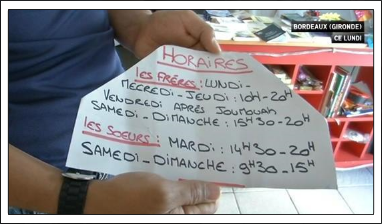 BORDEAUX (GIRONDE)
CE LUNDI
HORAIRES
les FRÈRES : LUNDI -
MECREDI - JEUDI : 10H - 20H
VENDREDI APRÈS JOUMOUAH
SAMEDI - DIMANCHE : 15H30 - 20H
les SOEURS : MARDI : 14H30 - 20H
SAMEDI - DIMANCHE : 9H30 - 15H